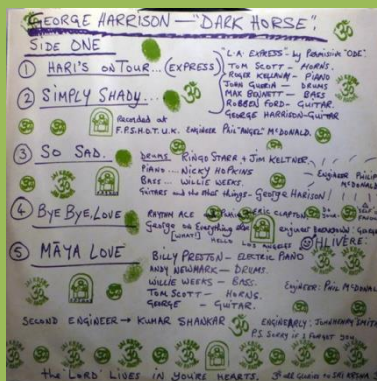 GEORGE HARRISON — "DARK HORSE".
SIDE ONE
① HARI'S ON TOUR... (EXPRESS)
"L.A. EXPRESS" - by Permission "ODE".
TOM SCOTT - HORNS.
ROGER KELLAWAY - PIANO
JOHN GUERIN - DRUMS
MAX BENNETT - BASS
ROBBEN FORD - GUITAR.
GEORGE HARRISON - GUITAR
② SIMPLY SHADY...
Recorded at
F.P.S.H.O.T. U.K. ENGINEER Phil "ANGEL" McDONALD.
③ SO SAD.
DRUMS RINGO STARR + JIM KELTNER
PIANO... NICKY HOPKINS
BASS... WILLIE WEEKS.
GUITARS and the other things - George HARISON
Engineer PHILIP
McDONALD
④ BYE BYE, LOVE
RHYTHM ACE ERIC CLAPTON
George on Everything else
[WHAT!]
HELLO LOS ANGELES
⑤ MĀYA LOVE
OHLIVERE:
BILLY PRESTON - ELECTRIC PIANO
ANDY NEWMARK - DRUMS.
WILLIE WEEKS - BASS.
TOM SCOTT - HORNS.
GEORGE - GUITAR.
ENGINEER: PHIL McDONALD
SECOND ENGINEER → KUMAR SHANKAR
ENGINEARLY: JOHN HENRY SMITH
P.S. SORRY IF I FORGOT YOU
the 'LORD' LIVES IN YOU'RE HEARTS. All Glories to SRI KRSNA